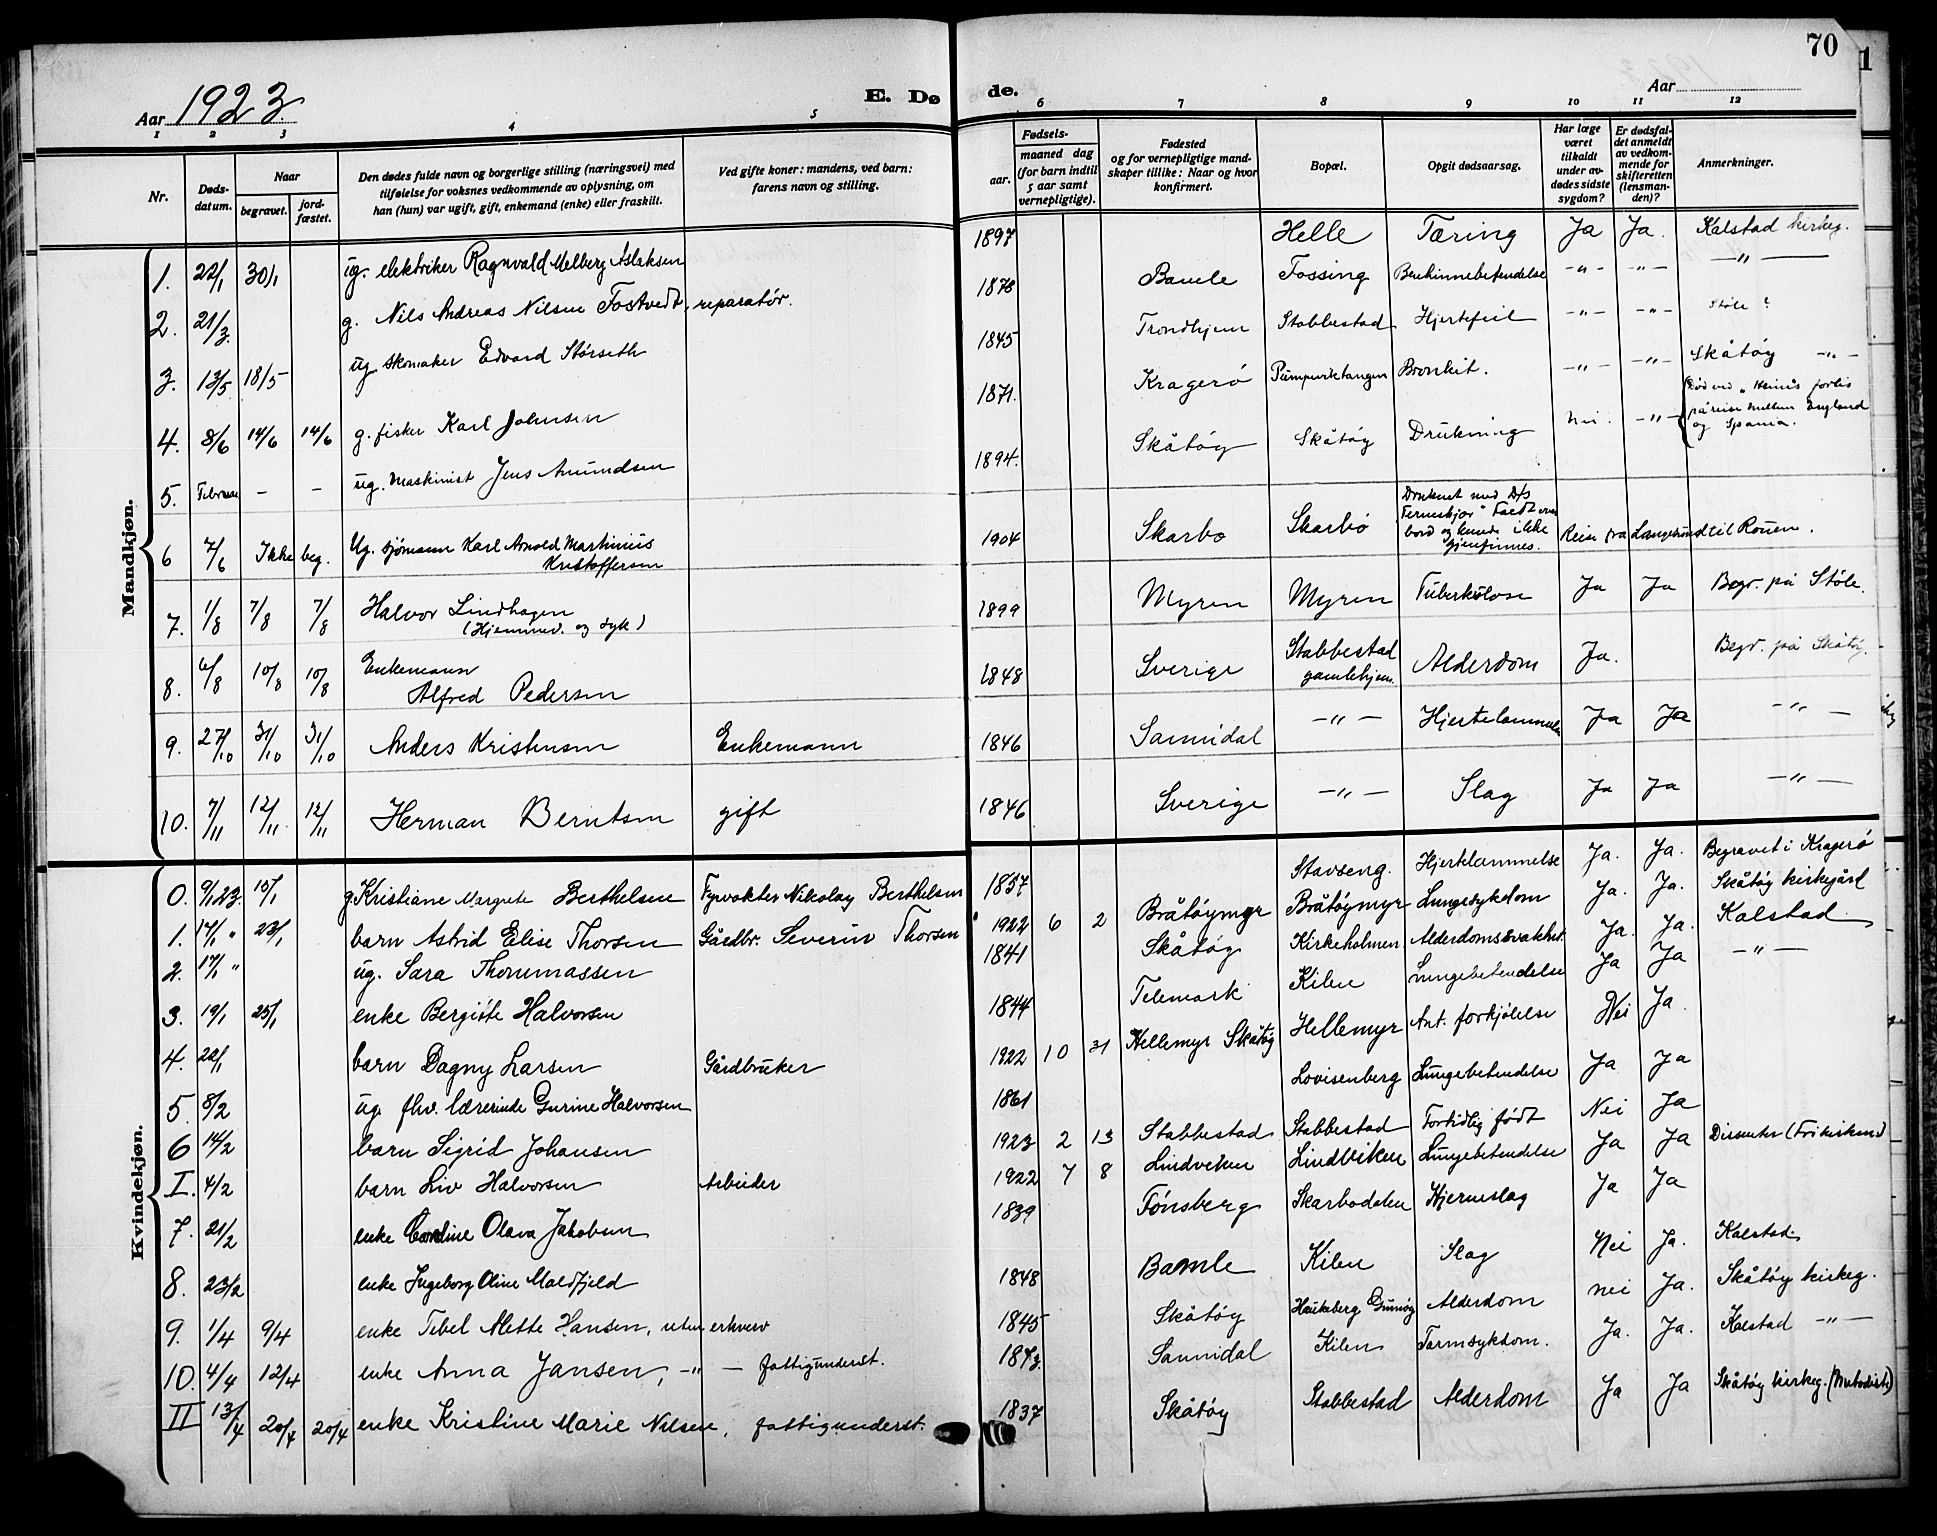 70
1
Aar 1923.
E. Dø de.
Aar
1 2 3 4 5 6 7 8 9 10 11 12
Nr.
Døds-
datum.
Naar
begravet.
jord-
fæstet.
Den dødes fulde navn og borgerlige stilling (næringsvei) med
tilføielse for voksnes vedkommende av oplysning, om
han (hun) var ugift, gift, enkemand (enke) eller fraskilt.
Ved gifte koner: mandens, ved barn:
farens navn og stilling.
Fødsels-
aar.
maaned dag
(for barn indtil
5 aar samt
vernepligtige).
Fødested
og for vernepligtige mand-
skaper tillike: Naar og hvor
konfirmert.
Bopæl.
Opgit dødsaarsag.
Har læge
været
tilkaldt
under av-
dødes sidste
sygdom?
Er dødsfal-
det anmeldt
av vedkom-
mende for
skifteretten
(lensman-
den)?
Anmerkninger.
Mandkjøn.
1. 22/1 30/1 ug. elektriker Ragnvald Melberg Aslaksen 1897 Helle Tæring Ja Ja. Kalstad kirkeg.
2. 21/3. g. Nils Andreas Nilsen Fostvedt, reparatør. 1878 Bamle Fossing -"- -"- -"-
3. 13/5 18/5 ug. skomaker Edvard Störseth 1845 Trondhjem Stabbestad Hjertefeil -"- -"- Støle ?
4. 8/6 14/6 14/6 g. fisker Karl Johnsen 1871. Kragerø Bronkit. -"- -"- Skåtøy -"-
5. Februar - - ug. Maskinist Jens Amundsen 1894. Skåtøy Skåtøy Drukning Nei. -"- forlis
på reise mellem England
og Spania.
6 7/6 Ikke beg. Ug. sjømann Karl Arnold Martinius
Kristoffersen 1904 Skarbo Skarbø Druknet med D/S
bord og kunde ikke
gjenfinnes. Reise fra Langesund til Rouen.
7. 1/8 7/8 7/8 Halvor Lindhagen
(Hjemmev. og syk) 1899 Myren Myren Tuberkulose Ja Ja Begr. på Støle.
8. 6/8 10/8 10/8 Enkemann
Alfred Pedersen 1848 Sverige Stabbestad
gamlehjem. Alderdom Ja. Begr. på Skåtøy.
9. 27/10 31/10 31/10 Anders Kristensen Enkemann 1846 Sannidal -"- Hjertelammelse Ja Ja -"-
10. 7/11 12/11. 12/11 Herman Berntsen gift 1846 Sverige -"- Slag Ja Ja -"-
Kvindekjøn.
0. 9/1 23. 15/1 g. Kristiane Margrete Berthelsen Fyrvokter Nikolay Berthelsen 1857 Stavseng. Hjertelammelse Ja. Ja. Begravet i Kragerø
1. 14/1 " 23/1 barn Astrid Elise Thorsen Gårdbr. Severin Thorsen 1922 6 2 Bråtøymyr Bråtøymyr Lungesykdom Ja. Ja. Skåtøy kirkegård
2. 17/1 " ug. Sara Thommassen 1841 Skåtøy Kirkeholmen Alderdomssvakhet. Ja. Ja. Kalstad
3. 19/1 25/1 enke Bergitte Halvorsen 1844 Telemark Kilen Lungebetendelse Ja Ja -"-
4. 22/1 barn Dagny Larsen Gårdbruker 1922 10 31 Hellemyr Skåtøy Hellemyr Ant. forkjølelse Nei Ja.
5 8/2 ug. fhv. lærerinde Gurine Halvorsen 1861 Lovisenberg Lungebetendelse Ja Ja
6 14/2 barn Sigrid Johansen 1923 2 13 Stabbestad Stabbestad Fortidlig født Nei Ja
I. 4/2 barn Liv Halvorsen Arbeider 1922 7 8 Lindviken Lindviken Lungebetendelse Ja Ja Dissenter (Frikirken)
7. 21/2 enke Caroline Olava Jakobsen 1839 Tønsberg Skarbodalen Hjerneslag Ja Ja
8. 23/2 enke Ingeborg Oline Maldfjeld 1848 Bamle Kilen Slag Nei Ja. Kalstad.
9. 1/4 9/4 enke Tibel Mette Hansen, uten erhverv 1845 Skåtøy Alderdom nei Ja. Skåtøy kirkeg.
10. 4/4 12/4 enke Anna Jansen, -"- - fattigunderst. 1873. Sannidal Kilen Tarmsykdom. Ja. Ja. Kalstad -"-
II 13/4 20/4 20/4 enke Kristine Marie Nilsen, fattigunderst. 1837 Skåtøy Stabbestad Alderdom Ja Ja Skåtøy kirkeg. (Metodist)